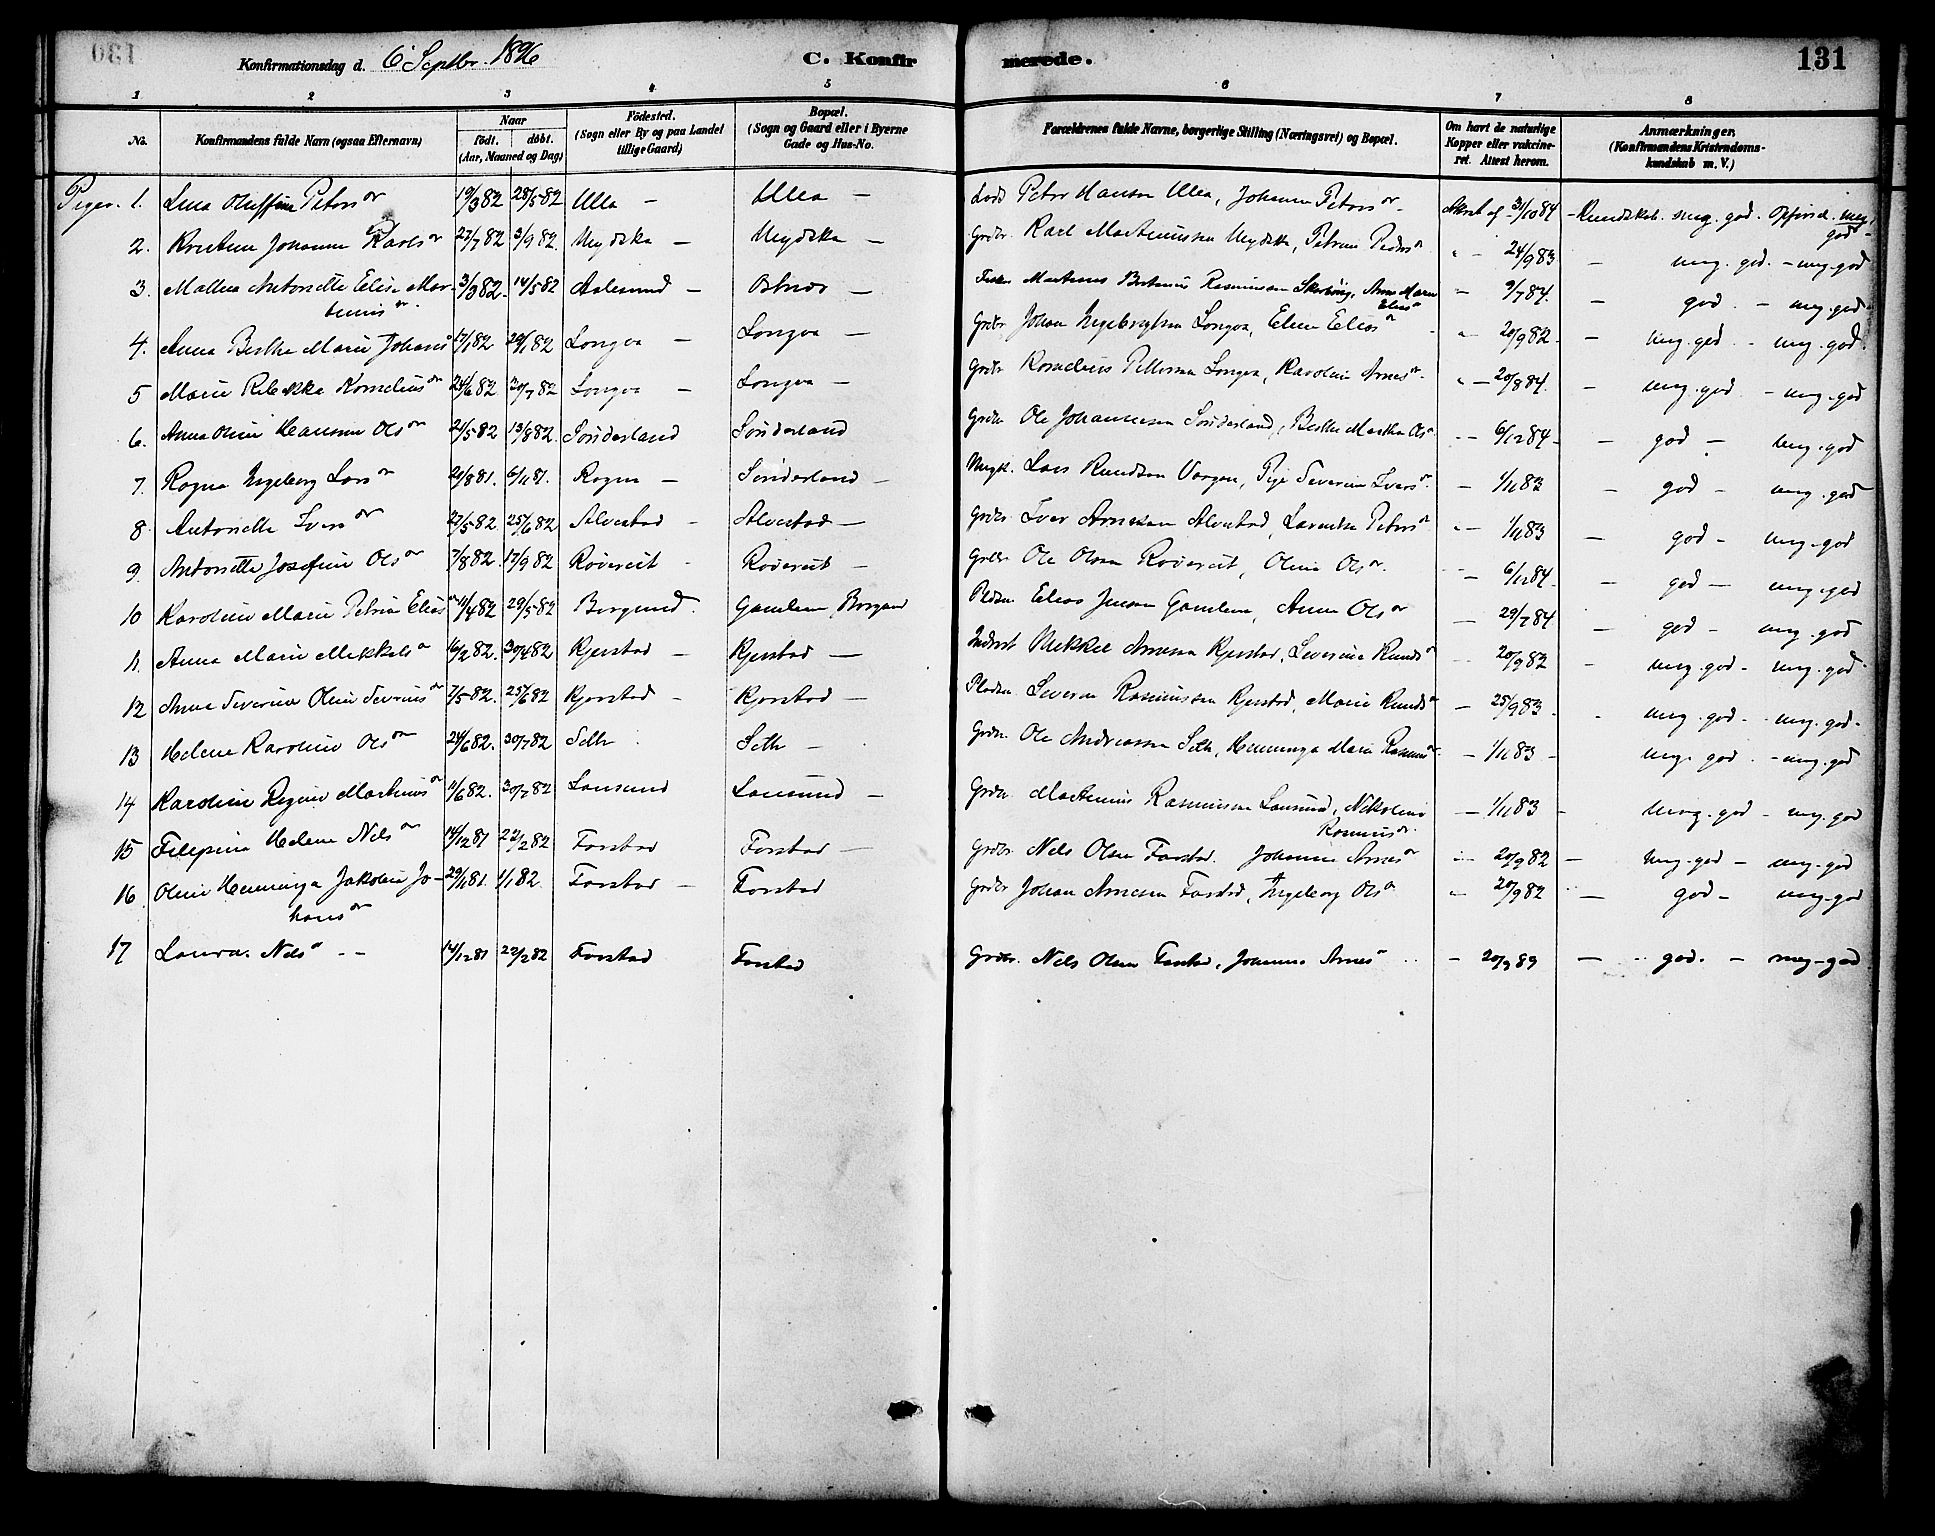 130
Konfirmationsdag d. 6 Septbr. 1896
C. Konfir
merede.
131
1 2 3 4 5 6 7 8
No.
Konfirmandens fulde Navn (ogsaa Efternavn)
Naar
födt. döbt.
(Aar, Maaned og Dag)
Födested.
(Sogn eller By og paa Landet
tillige Gaard)
Bopæl.
(Sogn og Gaard eller i Byerne
Gade og Hus-No.
Forældrenes fulde Navne, borgerlige Stilling (Næringsvei) og Bopæl.
Om havt de naturlige
Kopper eller vakcine-
ret. Attest herom.
Anmærkninger.
(Konfirmandens Kristendoms-
kundskab m. V.)
Piger. 1. Lina Oluffine Petersdr 19/3 82 28/5 82 Ulla — Ulla — Peter Hansen Ulla, Johanne Petersdr. Attest af 31/10 84 - Kundskab. meg. god. Opførsel. meg.
god -
2. Kristine Johanne Karlsdr 27/7 82 3/9 82. — — Grdbr. Karl Martinussen, Petrine Pedersdr " - 24/9 83 — meg. god. - meg. god
3. Mathea Antonette Elise Mar- 3/3 82. 14/5 82 Aalesund — Martinus Bertinus Rasmussen, Anne Marie
Eliasdr — 9/7 84. — god. — meg. god -
tinusdr.
4. Anna Berthe Marie Johansdr 17/1 82 29/1 82 Longva — Longva — Grdbr. Johan Ingebrigtsen Longva, Eline Eliasdr " - 20/9 82. — meg. god. - meg. god.
5 Marie Rebekka Korneliusdr 24/6 82 30/7 82 Longva — Longva — Grdbr Kornelius Pettersen Longva, Karoline Arnesdr. " — 20/8 84. — meg. god - meg. god
6. Anna Oline Hansine Olsdr 21/5 82 13/8 82. Sönderland Sönderland Grdbr Ole Johannesen Sönderland, Berthe Marthe Olsdr. — 6/12 84 - — god — meg. god
7. Ragna Ingeborg Larsdr 21/8 81. 6/11 81. Rogne — Sönderland — Ungk. Lars Knudsen, Pige Severine Iversdr. — 1/11 83 — god — meg. god
8. Antonette Iversdr 27/5 82. 25/6 82 Alvestad - Alvestad — Grdbr Iver Arnesen Alvestad, Petersdr " - 1/11 83 — god — meg. god
9. Antonette Josefine Olsdr 7/8 82. 17/9 82 Rövereit - Rövereit — Grdbr Ole Olsen Rövereit, Oline Olsdr. — 6/12 84. — god — meg. god
10 Karoline Marie Petrine Eliasdr 11/4 82 29/5 82 Borgund. Gamlem, Borgund Pladsm Elias Jensen Gamlem, Anne Olsdr — 29/7 84 — god — meg. god
11. Anna Marie Mikkelsdr 16/2 82. 30/4 82 Kjerstad — Kjerstad — Inderst Mikkel Arnesen Kjerstad, Severine Knudsdr — 20/9 82 — meg. god - meg. god.
12 Anne Severine Oline Severinsdr 7/5 82. 25/6 82 Kjerstad — Kjerstad — Pladsm Severin Rasmussen Kjerstad, Marie Knudsdr — 25/9 83 - meg. god - meg. god -
13 Helene Karoline Olsdr 24/6 82. 30/7 82 Seth Seth — Grdbr Ole Andreassen Seth, Henninga Marie Rasmusdr. — 1/11 83 - meg. god. - meg. god
14 Karoline Regine Martinusdr 11/6 82. 30/7 82 Lausund Lausund — Grdbr Martinus Rasmussen Lausund, Nikoline
Rasmusdr. — 1/11 83 - meg. god - meg. god
15 Filipina Helene Nilsdr 14/12 81 22/2 82 Farstad Farstad — Grdbr Nils Olsen Farstad. Johanne Arnesdr — 20/9 82 — meg. god — meg. god
16 Oline Henninga Jakobine Jo- 29/11 81. 1/1 82. Farstad — Farstad Grdbr Johan Arnesen Farstad, Ingeborg Olsdr " - 20/9 82 — god — meg. god
hansdr
17 Laura Nilsdr - - 14/12 81 22/2 82 Farstad Farstad Grdbr. Nils Olsen Farstad, Johanne Arnesdr — 20/9 89 — god. — meg. god